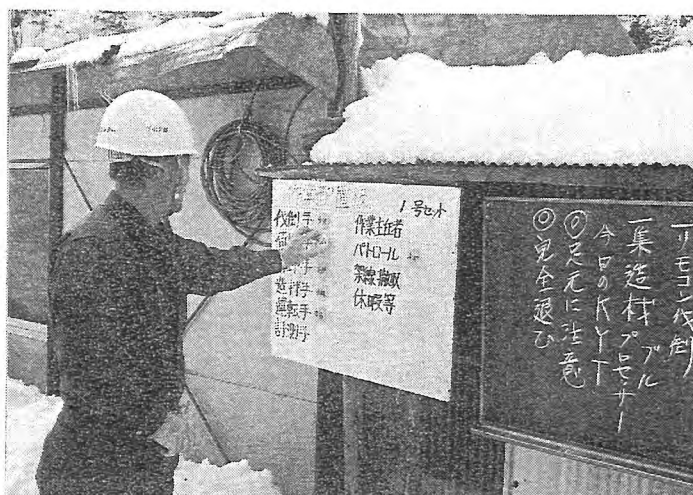 1号セット
伐倒手
造材手
運転手
計測手
作業主任者
パトロール
架線撤収
休暇等
リモコン伐倒
集造材ブル
プロセッサー
今日のKYT
◎足元に注意
◎完全退ひ